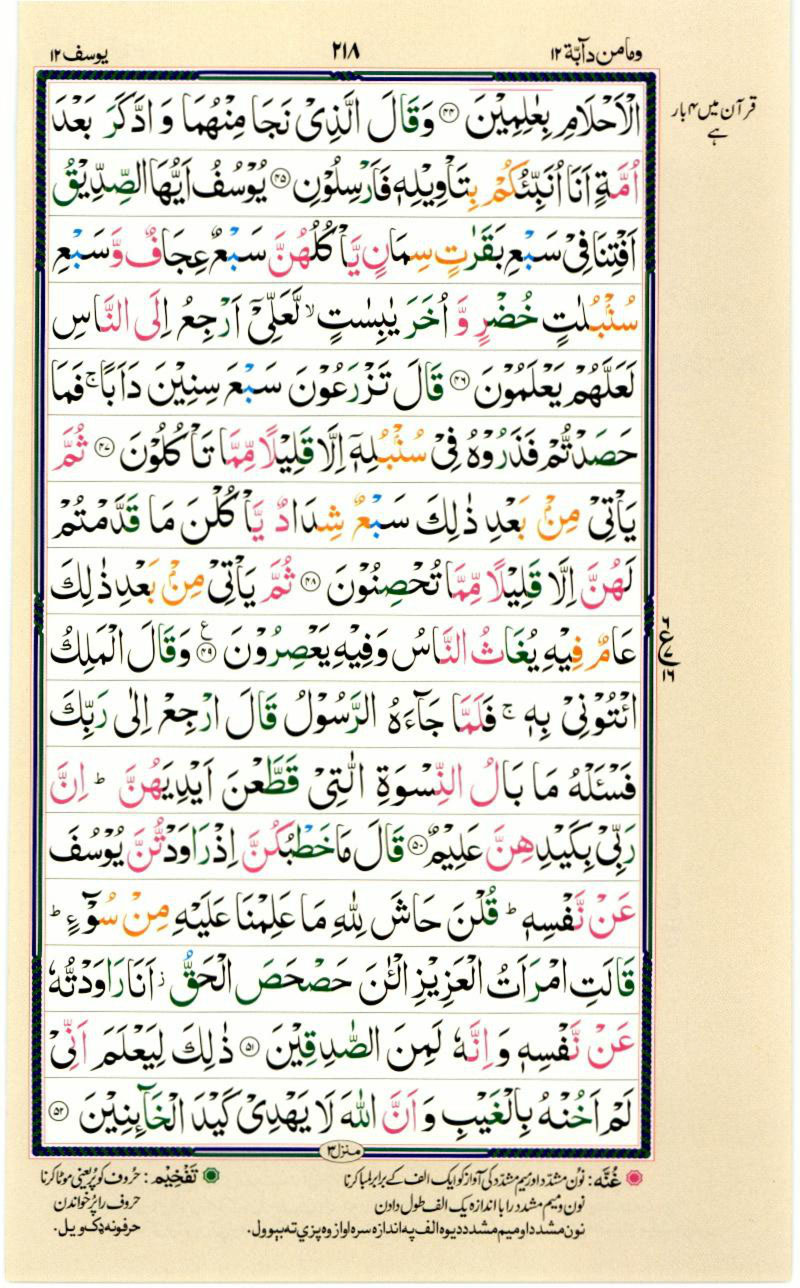 یوسف ۱۲
۲۱۸
ومامن دآبّة ۱۲
قرآن میں ۴ بار ہے
الْاَحْلَامِ بِعٰلِمِیْنَ ﴿۴۴﴾ وَقَالَ الَّذِیْ نَجَا مِنْهُمَا وَ ادَّكَرَ بَعْدَ
اُمَّةٍ اَنَا اُنَبِّئُكُمْ بِتَاْوِیْلِهٖ فَاَرْسِلُوْنِ ﴿۴۵﴾ یُوْسُفُ اَیُّهَا الصِّدِّیْقُ
اَفْتِنَا فِیْ سَبْعِ بَقَرٰتٍ سِمَانٍ یَّاْكُلُهُنَّ سَبْعٌ عِجَافٌ وَّ سَبْعِ
سُنْۢبُلٰتٍ خُضْرٍ وَّ اُخَرَ یٰبِسٰتٍ ۙ لَّعَلِّیْۤ اَرْجِعُ اِلَی النَّاسِ
لَعَلَّهُمْ یَعْلَمُوْنَ ﴿۴۶﴾ قَالَ تَزْرَعُوْنَ سَبْعَ سِنِیْنَ دَاَبًا ۚ فَمَا
حَصَدْتُّمْ فَذَرُوْهُ فِیْ سُنْۢبُلِهٖۤ اِلَّا قَلِیْلًا مِّمَّا تَاْكُلُوْنَ ﴿۴۷﴾ ثُمَّ
یَاْتِیْ مِنْۢ بَعْدِ ذٰلِكَ سَبْعٌ شِدَادٌ یَّاْكُلْنَ مَا قَدَّمْتُمْ
لَهُنَّ اِلَّا قَلِیْلًا مِّمَّا تُحْصِنُوْنَ ﴿۴۸﴾ ثُمَّ یَاْتِیْ مِنْۢ بَعْدِ ذٰلِكَ
عَامٌ فِیْهِ یُغَاثُ النَّاسُ وَ فِیْهِ یَعْصِرُوْنَ ﴿۴۹﴾ ع وَقَالَ الْمَلِكُ
۶
ع ۷
۱۶
ائْتُوْنِیْ بِهٖ ۚ فَلَمَّا جَآءَهُ الرَّسُوْلُ قَالَ ارْجِعْ اِلٰی رَبِّكَ
فَسْـَٔلْهُ مَا بَالُ النِّسْوَةِ الّٰتِیْ قَطَّعْنَ اَیْدِیَهُنَّ ؕ اِنَّ
رَبِّیْ بِكَیْدِهِنَّ عَلِیْمٌ ﴿۵۰﴾ قَالَ مَا خَطْبُكُنَّ اِذْ رَاوَدْتُّنَّ یُوْسُفَ
عَنْ نَّفْسِهٖ ؕ قُلْنَ حَاشَ لِلّٰهِ مَا عَلِمْنَا عَلَیْهِ مِنْ سُوْٓءٍ ؕ
قَالَتِ امْرَاَتُ الْعَزِیْزِ الْـٰٔنَ حَصْحَصَ الْحَقُّ ؗ اَنَا رَاوَدْتُّهٗ
عَنْ نَّفْسِهٖ وَ اِنَّهٗ لَمِنَ الصّٰدِقِیْنَ ﴿۵۱﴾ ذٰلِكَ لِیَعْلَمَ اَنِّیْ
لَمْ اَخُنْهُ بِالْغَیْبِ وَ اَنَّ اللّٰهَ لَا یَهْدِیْ كَیْدَ الْخَآئِنِیْنَ ﴿۵۲﴾
منزل ۳
غُنَّه : نُون مشدّد اور میم مشدّد کی آواز کو ایک الف کے برابر لمبا کرنا
نون و میم مشدد را با اندازہ یک الف طول دادن
نون مشدد او میم مشدد د یوہ الف په اندازه سره اواز وه پزي ته بېوول.
تَفْخِیْم : حُروف کو پُر یعنی موٹا کرنا
حروف را پُر خواندن
حرفونه ډک ویل.